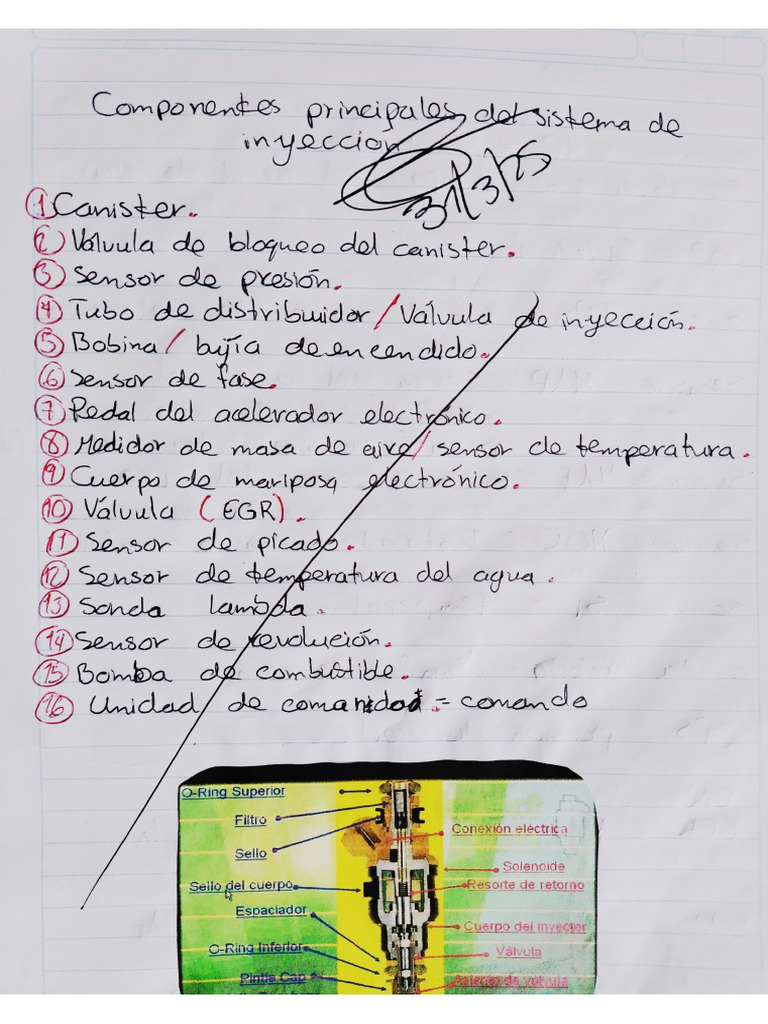 Componentes principales del sistema de
inyección
31/3/25
1 Canister.
2 Válvula de bloqueo del canister.
3 Sensor de presión.
4 Tubo de distribuidor / Válvula de inyección.
5 Bobina / bujía de encendido.
6 Sensor de fase.
7 Pedal del acelerador electrónico.
8 Medidor de masa de aire / sensor de temperatura.
9 Cuerpo de mariposa electrónico.
10 Válvula (EGR).
11 Sensor de picado.
12 Sensor de temperatura del agua.
13 Sonda lambda.
14 Sensor de revolución.
15 Bomba de combustible.
16 Unidad de = comando
O-Ring Superior
Filtro
Conexión eléctrica
Sello
Solenoide
Sello del cuerpo
Resorte de retorno
Espaciador
Cuerpo del inyector
O-Ring Inferior
Válvula
Pintle Cap
Asiento de válvula